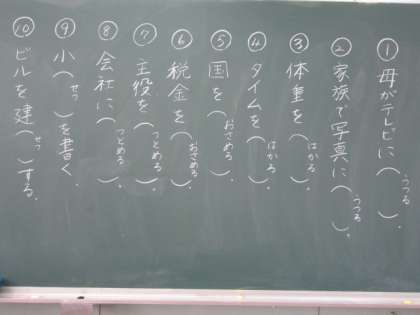 ①母がテレビに(うつる)。
②家族で写真に(うつる)。
③体重を(はかる)。
④タイムを(はかる)。
⑤国を(おさめる)。
⑥税金を(おさめる)。
⑦主役を(つとめる)。
⑧会社に(つとめる)。
⑨小(せつ)を書く。
⑩ビルを建(せつ)する。